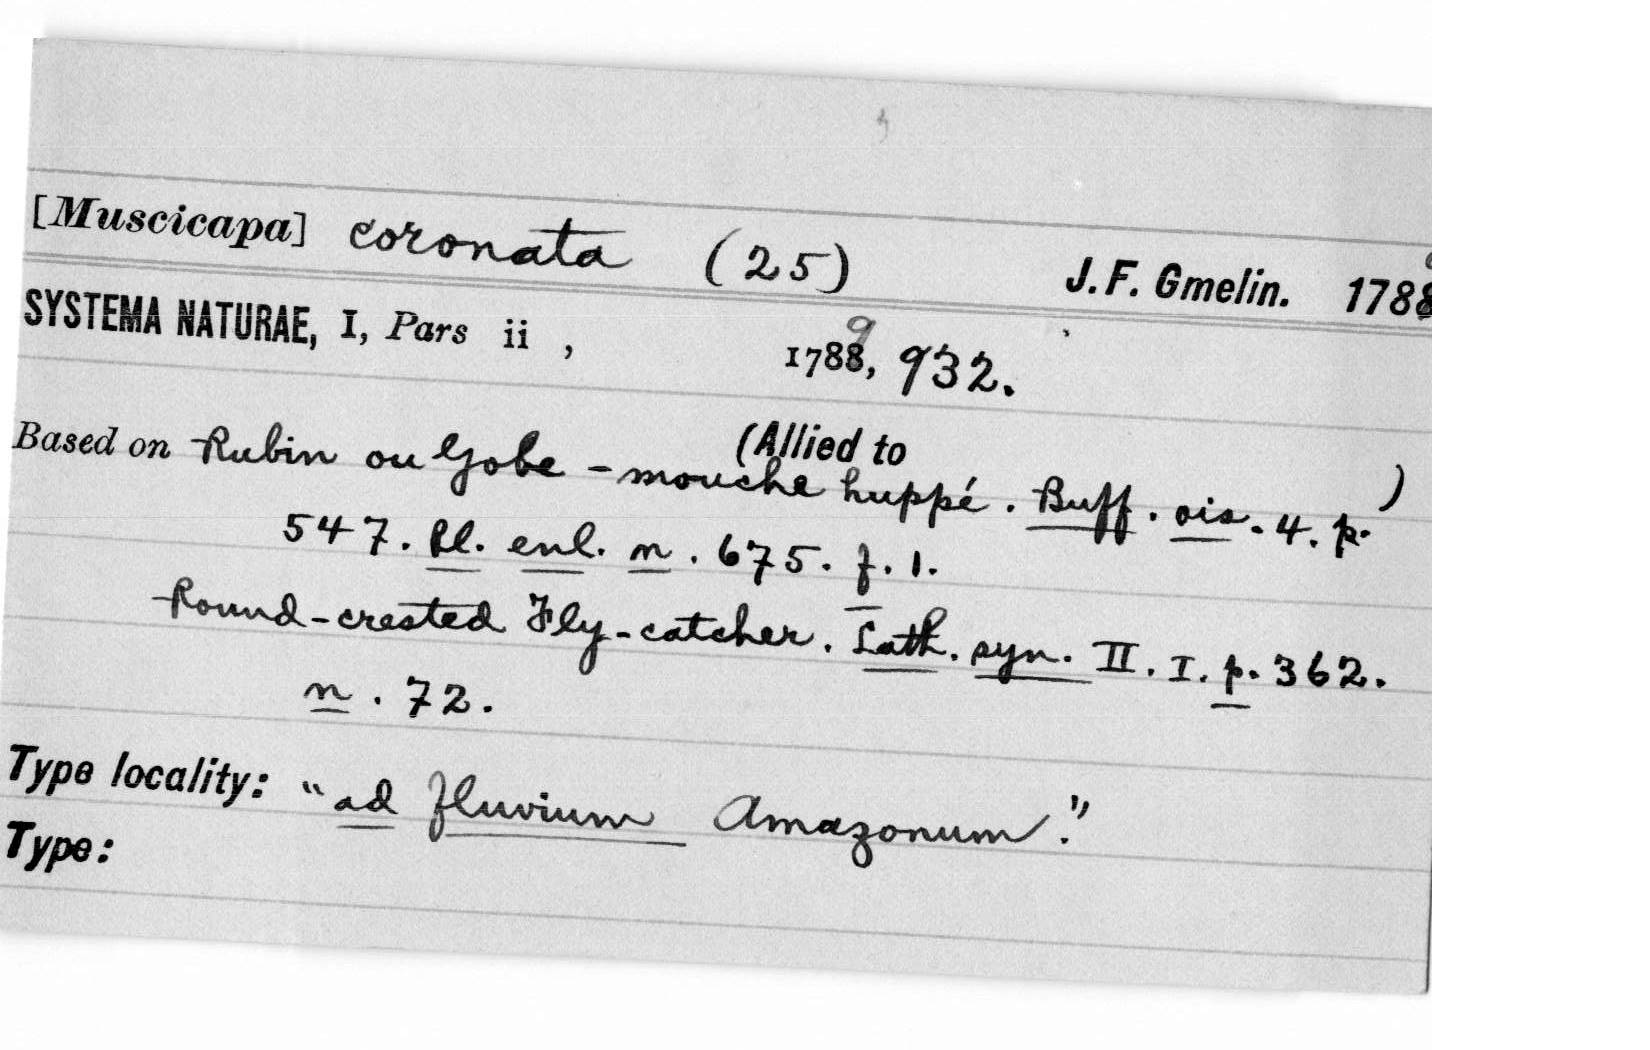 [Muscicapa] coronata (25) J. F. Gmelin. 1788
SYSTEMA NATURAE, I, Pars ii , 1788, 9 932.
(Allied to )
Based on Rubin ou Gobe-mouche huppé. Buff. ois. 4. p.
547. Pl. enl. n. 675. f. 1.
Round-crested Fly-catcher. Lath. syn. II. I. p. 362.
n. 72.
Type locality: "ad fluvium Amazonum."
Type: